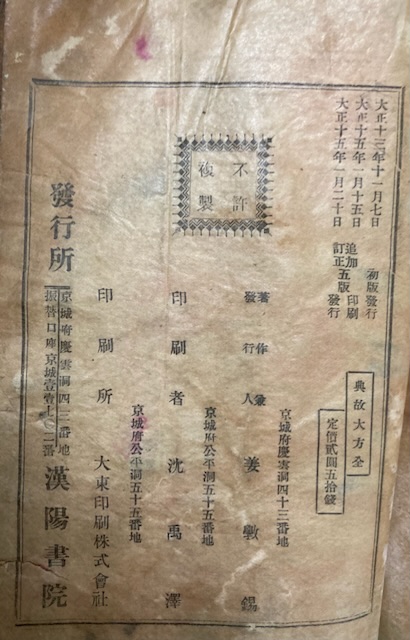 大正十三年十一月七日 初版發行
大正十五年一月十五日 追加印刷
大正十五年一月二十日 訂正五版發行
典故大方全
定價貳圓五拾錢
不許複製
京城府慶雲洞四十三番地
著作兼發行人 姜斅錫
京城府公平洞五十五番地
印刷者 沈禹澤
京城府公平洞五十五番地
印刷所 大東印刷株式會社
發行所
京城府慶雲洞四三番地
振替口座京城壹壹七〇二番
漢陽書院